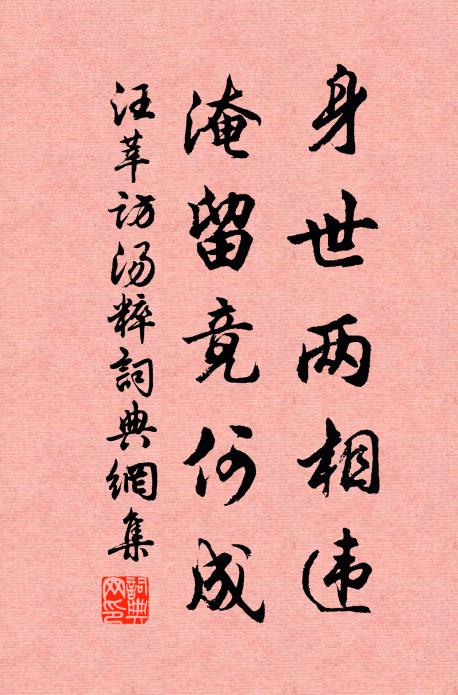 身世两相违
淹留竟何成
汪莘访汤粹詞典網集
詞典網印